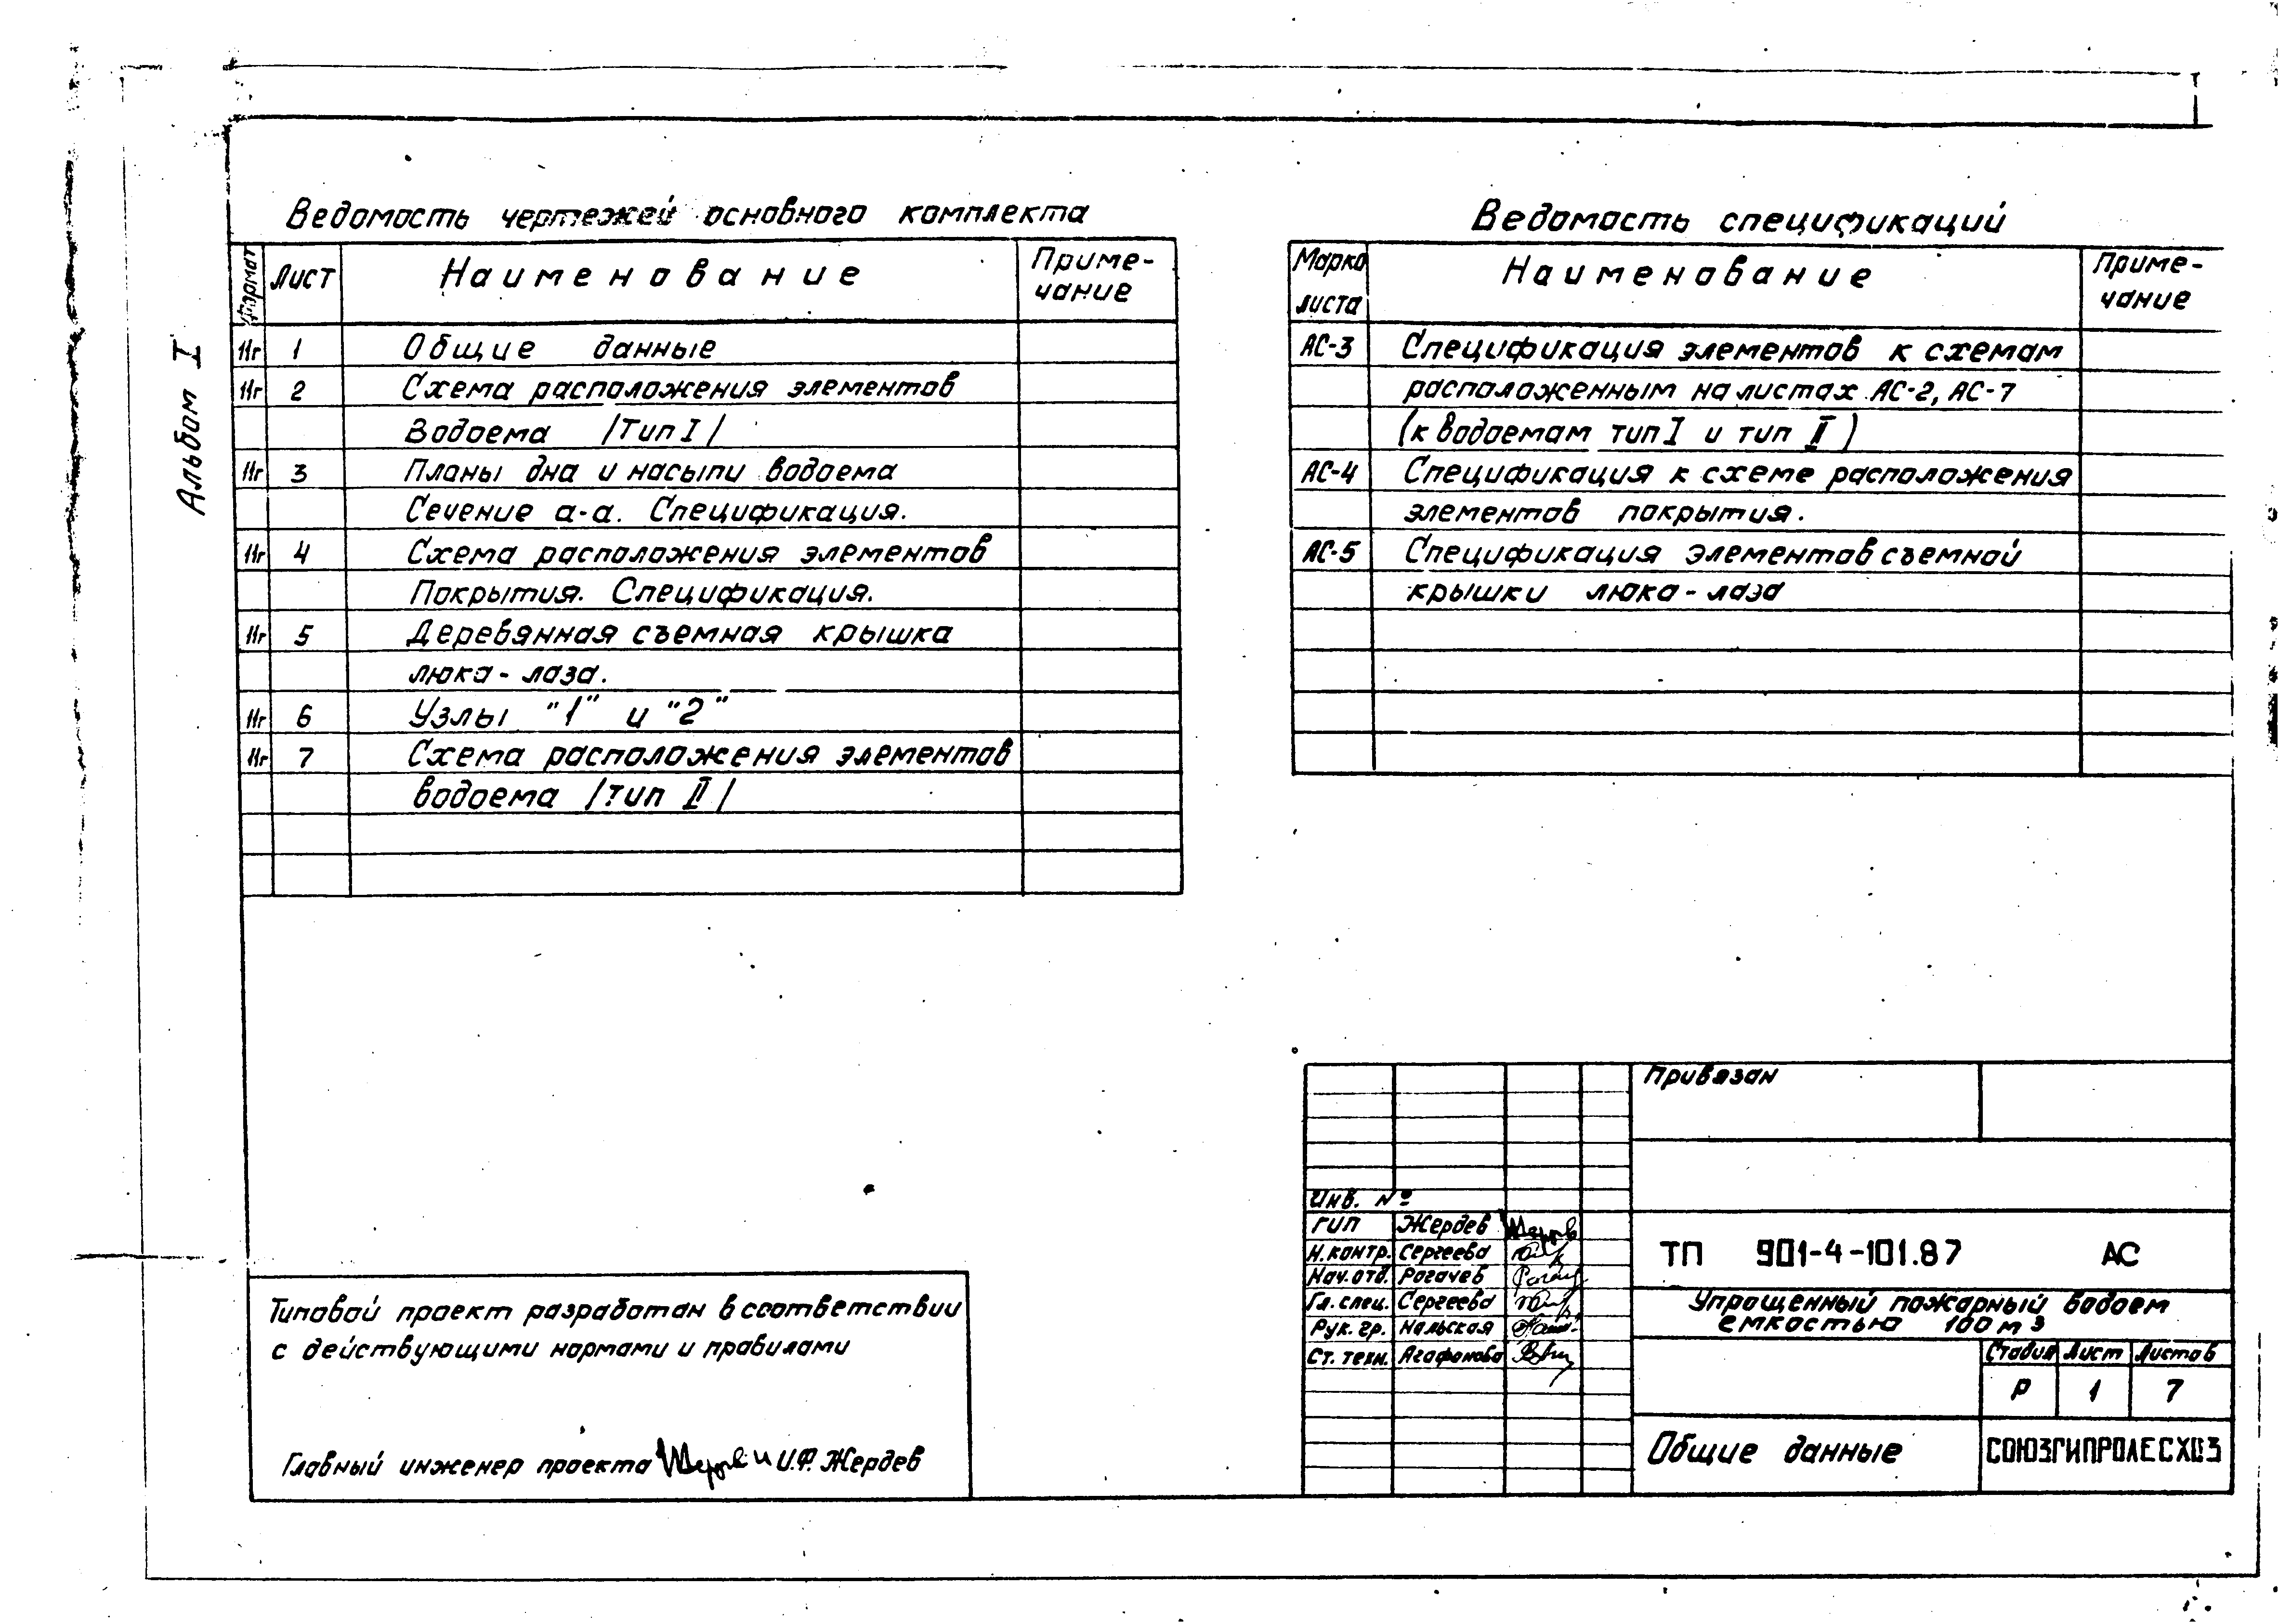 Альбом I
Ведомость чертежей основного комплекта
Формат Лист Наименование Приме-
чание
11г 1 Общие данные
11г 2 Схема расположения элементов
Водоема /Тип I/
11г 3 Планы дна и насыпи водоема
Сечение а-а. Спецификация.
11г 4 Схема расположения элементов
Покрытия. Спецификация.
11г 5 Деревянная съемная крышка
люка-лаза.
11г 6 Узлы "1" и "2"
11г 7 Схема расположения элементов
водоема /тип II/
Ведомость спецификаций
Марка
листа Наименование Приме-
чание
АС-3 Спецификация элементов к схемам
расположенным на листах АС-2, АС-7
(к водоемам тип I и тип II)
АС-4 Спецификация к схеме расположения
элементов покрытия.
АС-5 Спецификация элементов съемной
крышки люка-лаза
Типовой проект разработан в соответствии
с действующими нормами и правилами
Главный инженер проекта И.Ф. Жердев
Привязан
Инв. №
ГИП Жердев
Н.контр. Сергеева
Нач.отд. Рогачев
Гл. спец. Сергеева
Рук. гр. Нальская
Ст. техн. Агафонова
ТП 901-4-101.87 АС
Упрощенный пожарный водоем
емкостью 100 м3
Стадия Лист Листов
Р 1 7
Общие данные
СОЮЗГИПРОЛЕСХОЗ